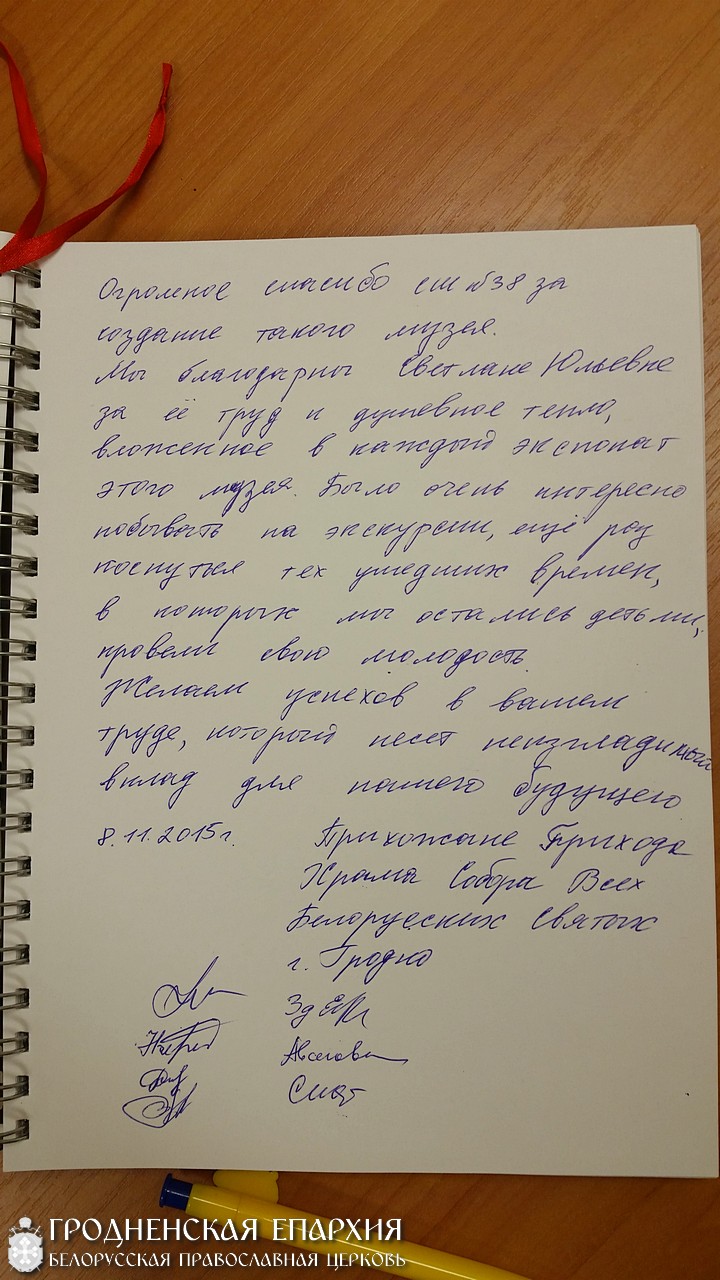 Огромное спасибо сш №38 за
создание такого музея.
Мы благодарны Светлане Юльевне
за её труд и душевное тепло,
вложенное в каждый экспонат
этого музея. Было очень интересно
побывать на экскурсии, ещё раз
коснуться тех ушедших времен,
в которых мы остались детьми,
провели свою молодость.
Желаем успехов в вашем
труде, который несет неизгладимый
вклад для нашего будущего
8.11.2015г. Прихожане Прихода
Храма Собора Всех
Белорусских Святых
г. Гродно
ГРОДНЕНСКАЯ ЕПАРХИЯ
БЕЛОРУССКАЯ ПРАВОСЛАВНАЯ ЦЕРКОВЬ